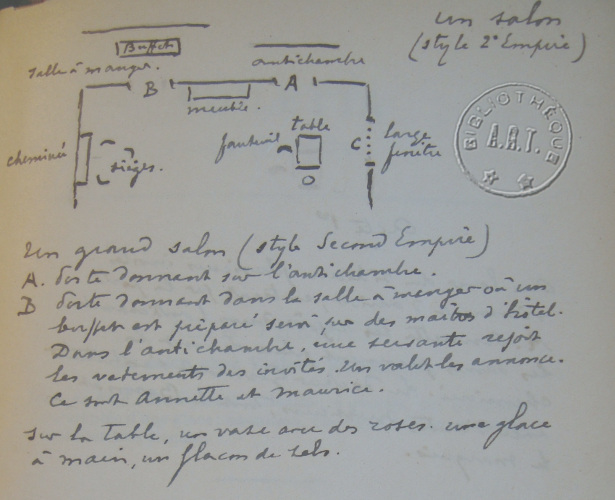 un salon
(style 2e Empire)
Buffet
salle à manger.
antichambre
B
A
meuble.
cheminée
sièges.
fauteuil
table
C
large
fenêtre
BIBLIOTHÈQUE
A.R.T.
Un grand salon (style Second Empire)
A. Porte donnant sur l'antichambre.
B Porte donnant dans la salle à manger où un
buffet est préparé servi par des maîtres d'hôtel.
Dans l'antichambre, une servante reçoit
les vêtements des invités. Un valet les annonce.
Ce sont Annette et Maurice.
Sur la table, un vase avec des roses. une glace
à main, un flacon de sels.